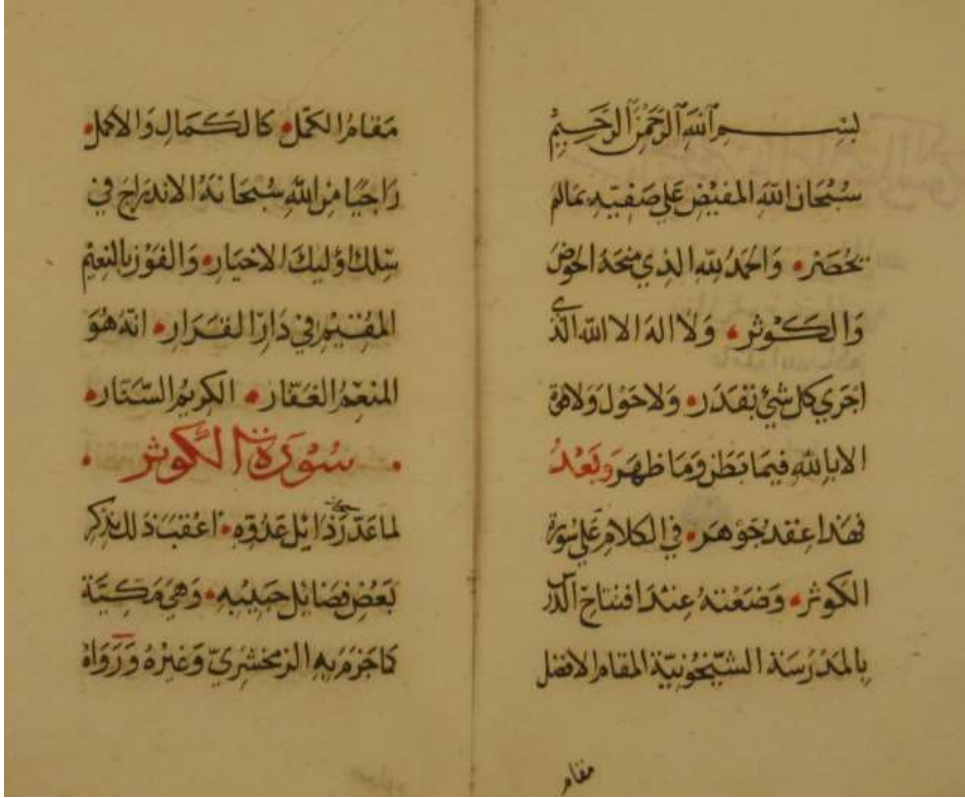 بِسْمِ اللهِ الرَّحْمٰنِ الرَّحِيْمِ
سُبْحَانَ اللهِ المفيْضِ عَلى صَفيّهِ مَالم
يحُصَرْ • وَالحَمْدُ للهِ الذي منحَهُ الحَوضَ
وَالكَوْثر • وَلا اله الا الله الّذى
اجْري كل شئ بقَدَر • وَلا حَوْل وَلا قوة
الا بالله فيمَا بَطَن وَمَا ظهَر وَبَعْدُ
فهَذا عِقد جَوْهَر • في الكلام عَلى سُورة
الكوثر • وَضَعْتهُ عِنْدَ افتتاح الدّرس
بالمَدْرَسَة الشيْخُونيّة المقام الافضل
مقام
مَقامُ الكمّل • كالكَمال وَالاكمل •
رَاجيًا مِنَ اللهِ سُبْحَانهُ الاندرَاج في
سِلك اوُليكَ الاخيَار • وَالفوْز بالنعِيْم
المُقيْم في دَار القرَار • انّهُ هُوَ
المنعِمُ الغفّار • الكريمُ السّتار •
• سُوْرَة الكوثر •
لما عَدّ رَذايل عَدُوّه • اعْقبَ ذلك بذكر
بَعْض فضَايل حَبيْبه • وَهيَ مَكيّة
كما جَزم به الزمخشريّ وَغيْرهُ وَرَوَاهُ